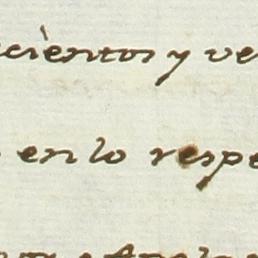 cientos y ve
en lo respe